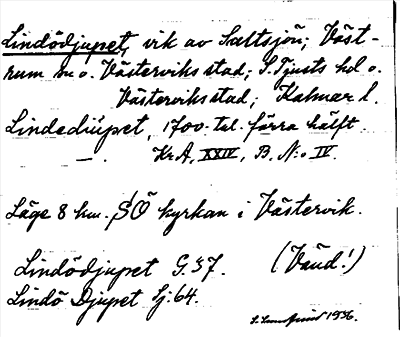 Lindödjupet, vik av Saltsjön; Väst-
rum sn o. Västerviks stad; S. Tjusts hd o.
Västerviks stad; Kalmar l.
Lindediupet, 1700-tal. förra hälft.
—"— Kr A, XXIV, B. N:o IV.
Läge 8 km. SÖ kyrkan i Västervik.
Lindödjupet G. 37. (Vänd!)
Lindö Djupet Sj. 64.
1936.